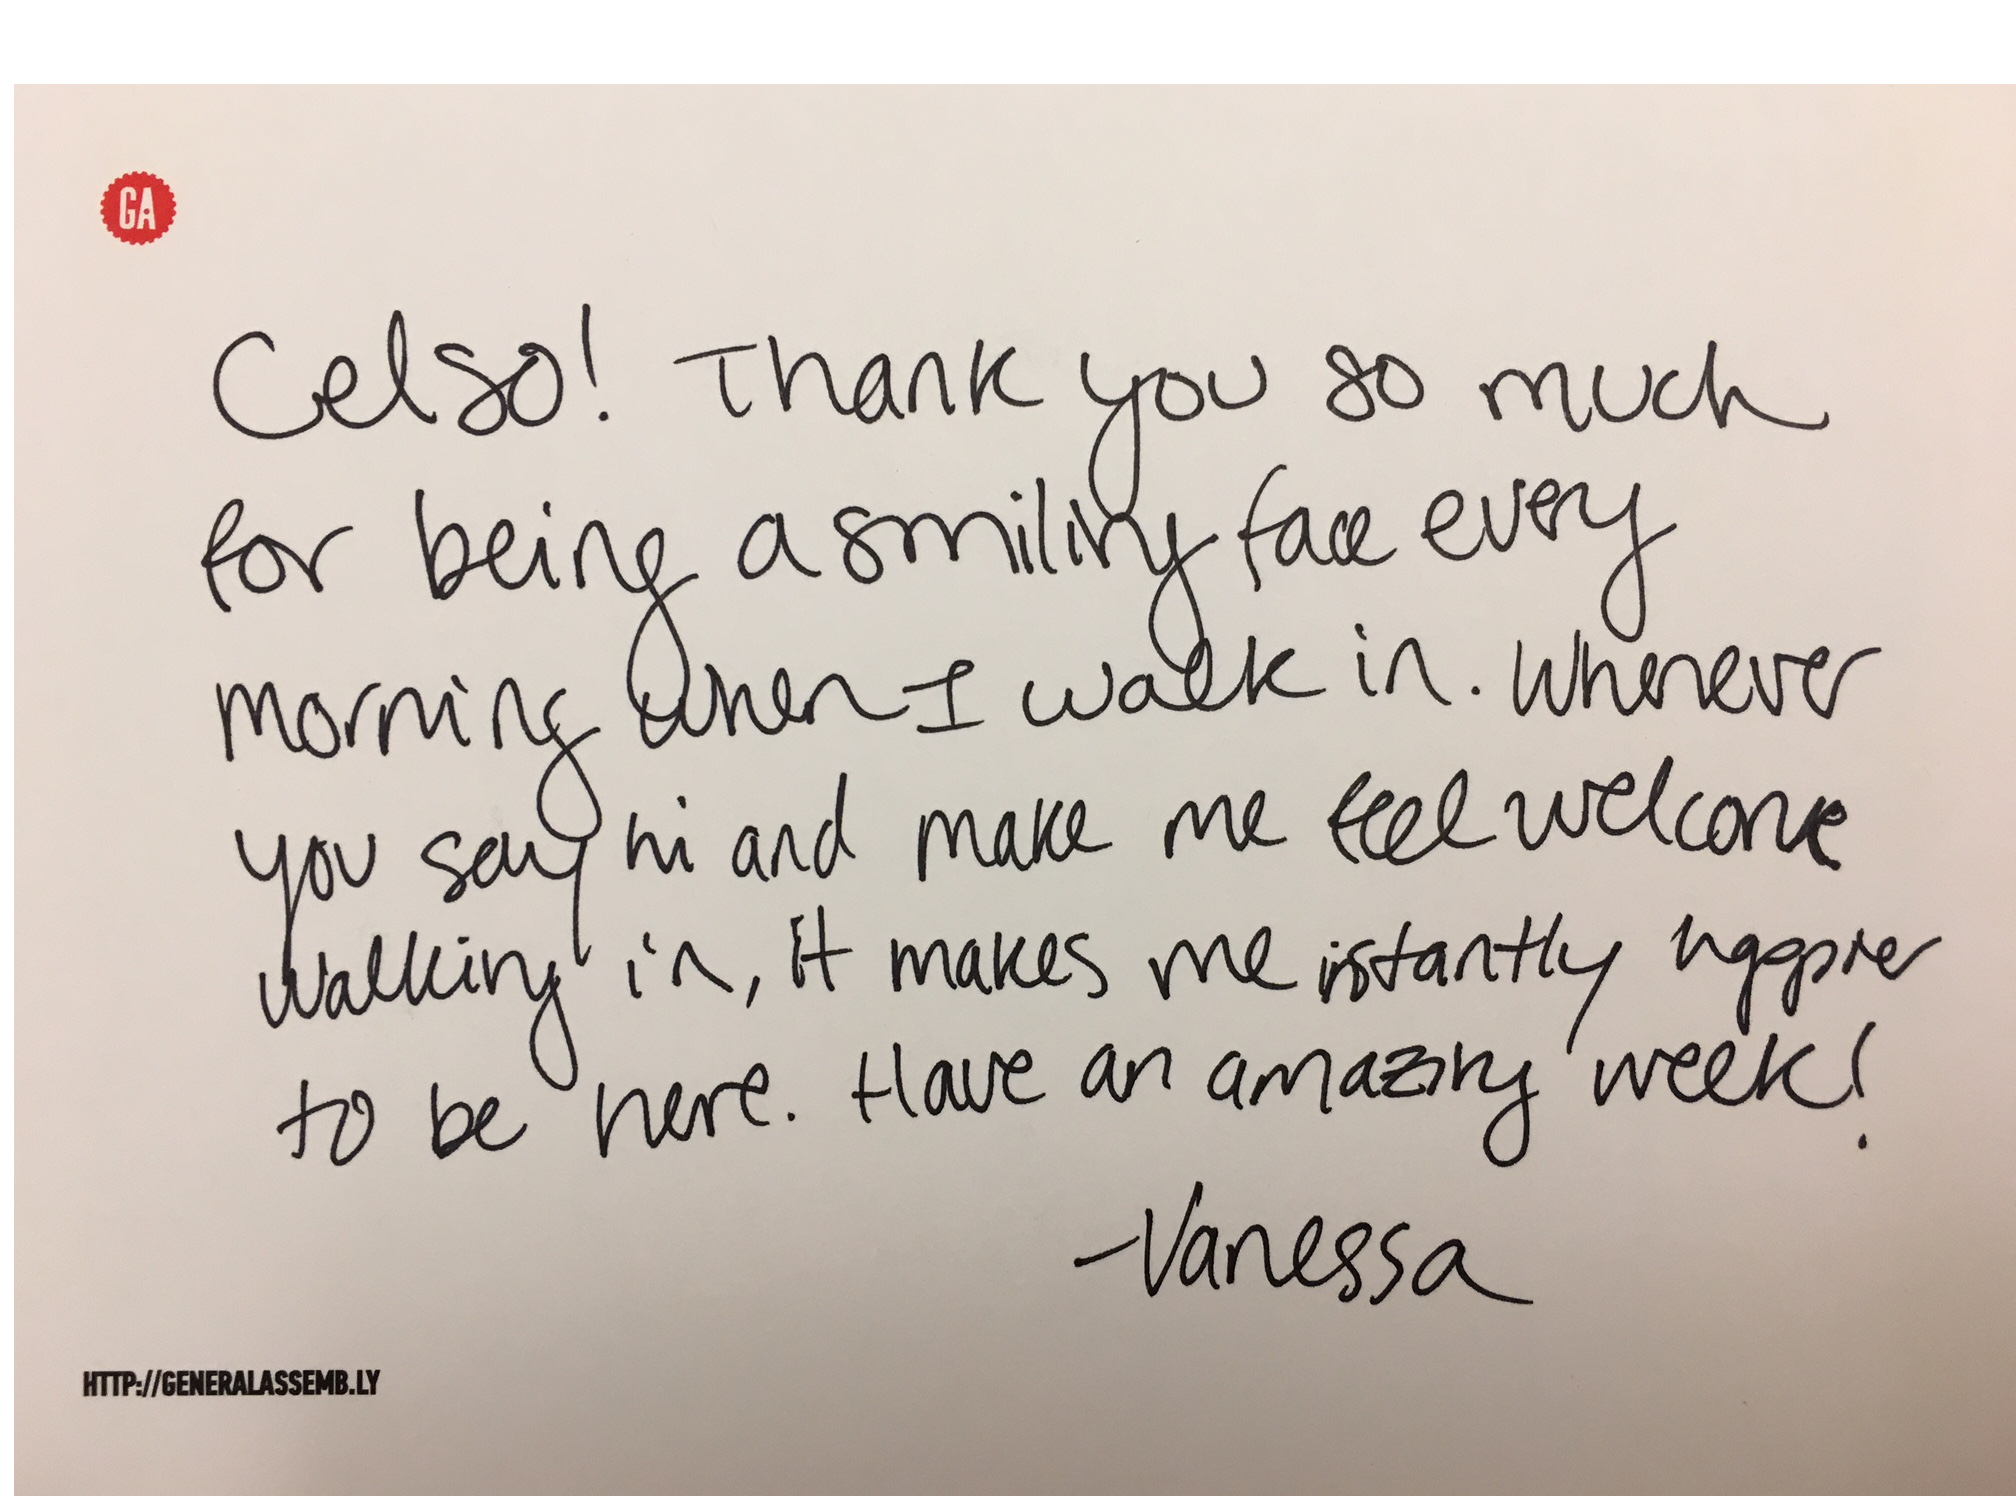 GA
Celso! Thank you so much
for being a smiling face every
morning when I walk in. Whenever
you say hi and make me feel welcome
walking in, it makes me instantly happier
to be here. Have an amazing week!
-Vanessa
HTTP://GENERALASSEMB.LY